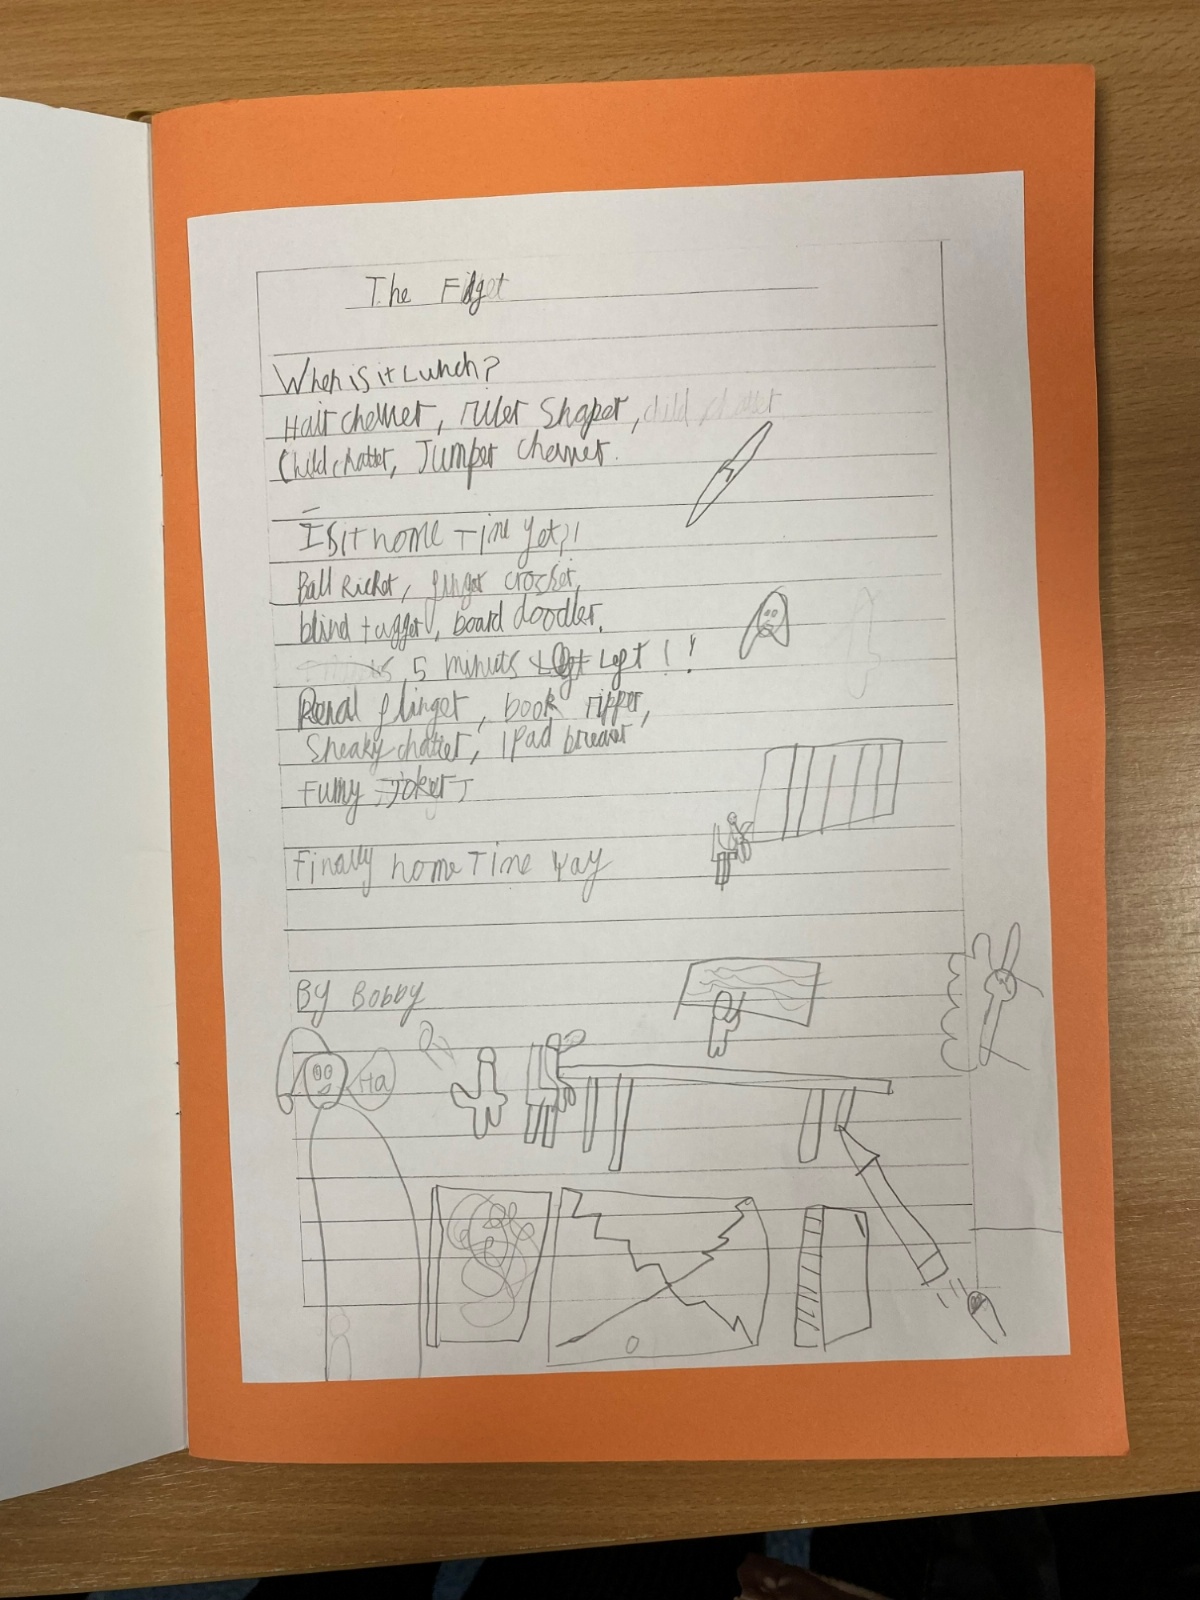 The Fidget
When is it Lunch?
Hair chewer, ruler Shaper, child chatter
Child chatter, Jumper chewer.
Is it home Time yet?!
Ball Kicker, finger crocher,
blind tugger, board doodler,
5 minuts Left!!
flinger, book ripper,
Sneaky chatter, iPad breaker
Funny joker
Finally home Time yay
By Bobby
Ha